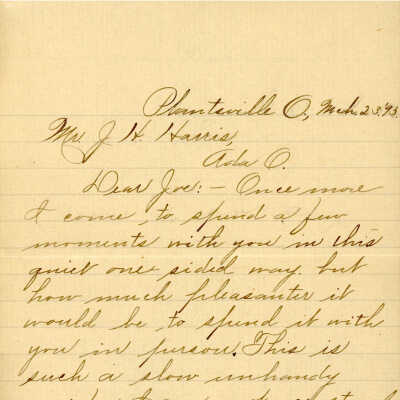 Plantsville O., Mch. 23. '93.
Mr. J. H. Harris,
Ada O.
Dear Joe: — Once more
I come to spend a few
moments with you in this
quiet one sided way. but
how much pleasanter it
would be to spend it with
you in person. This is
such a slow unhandy